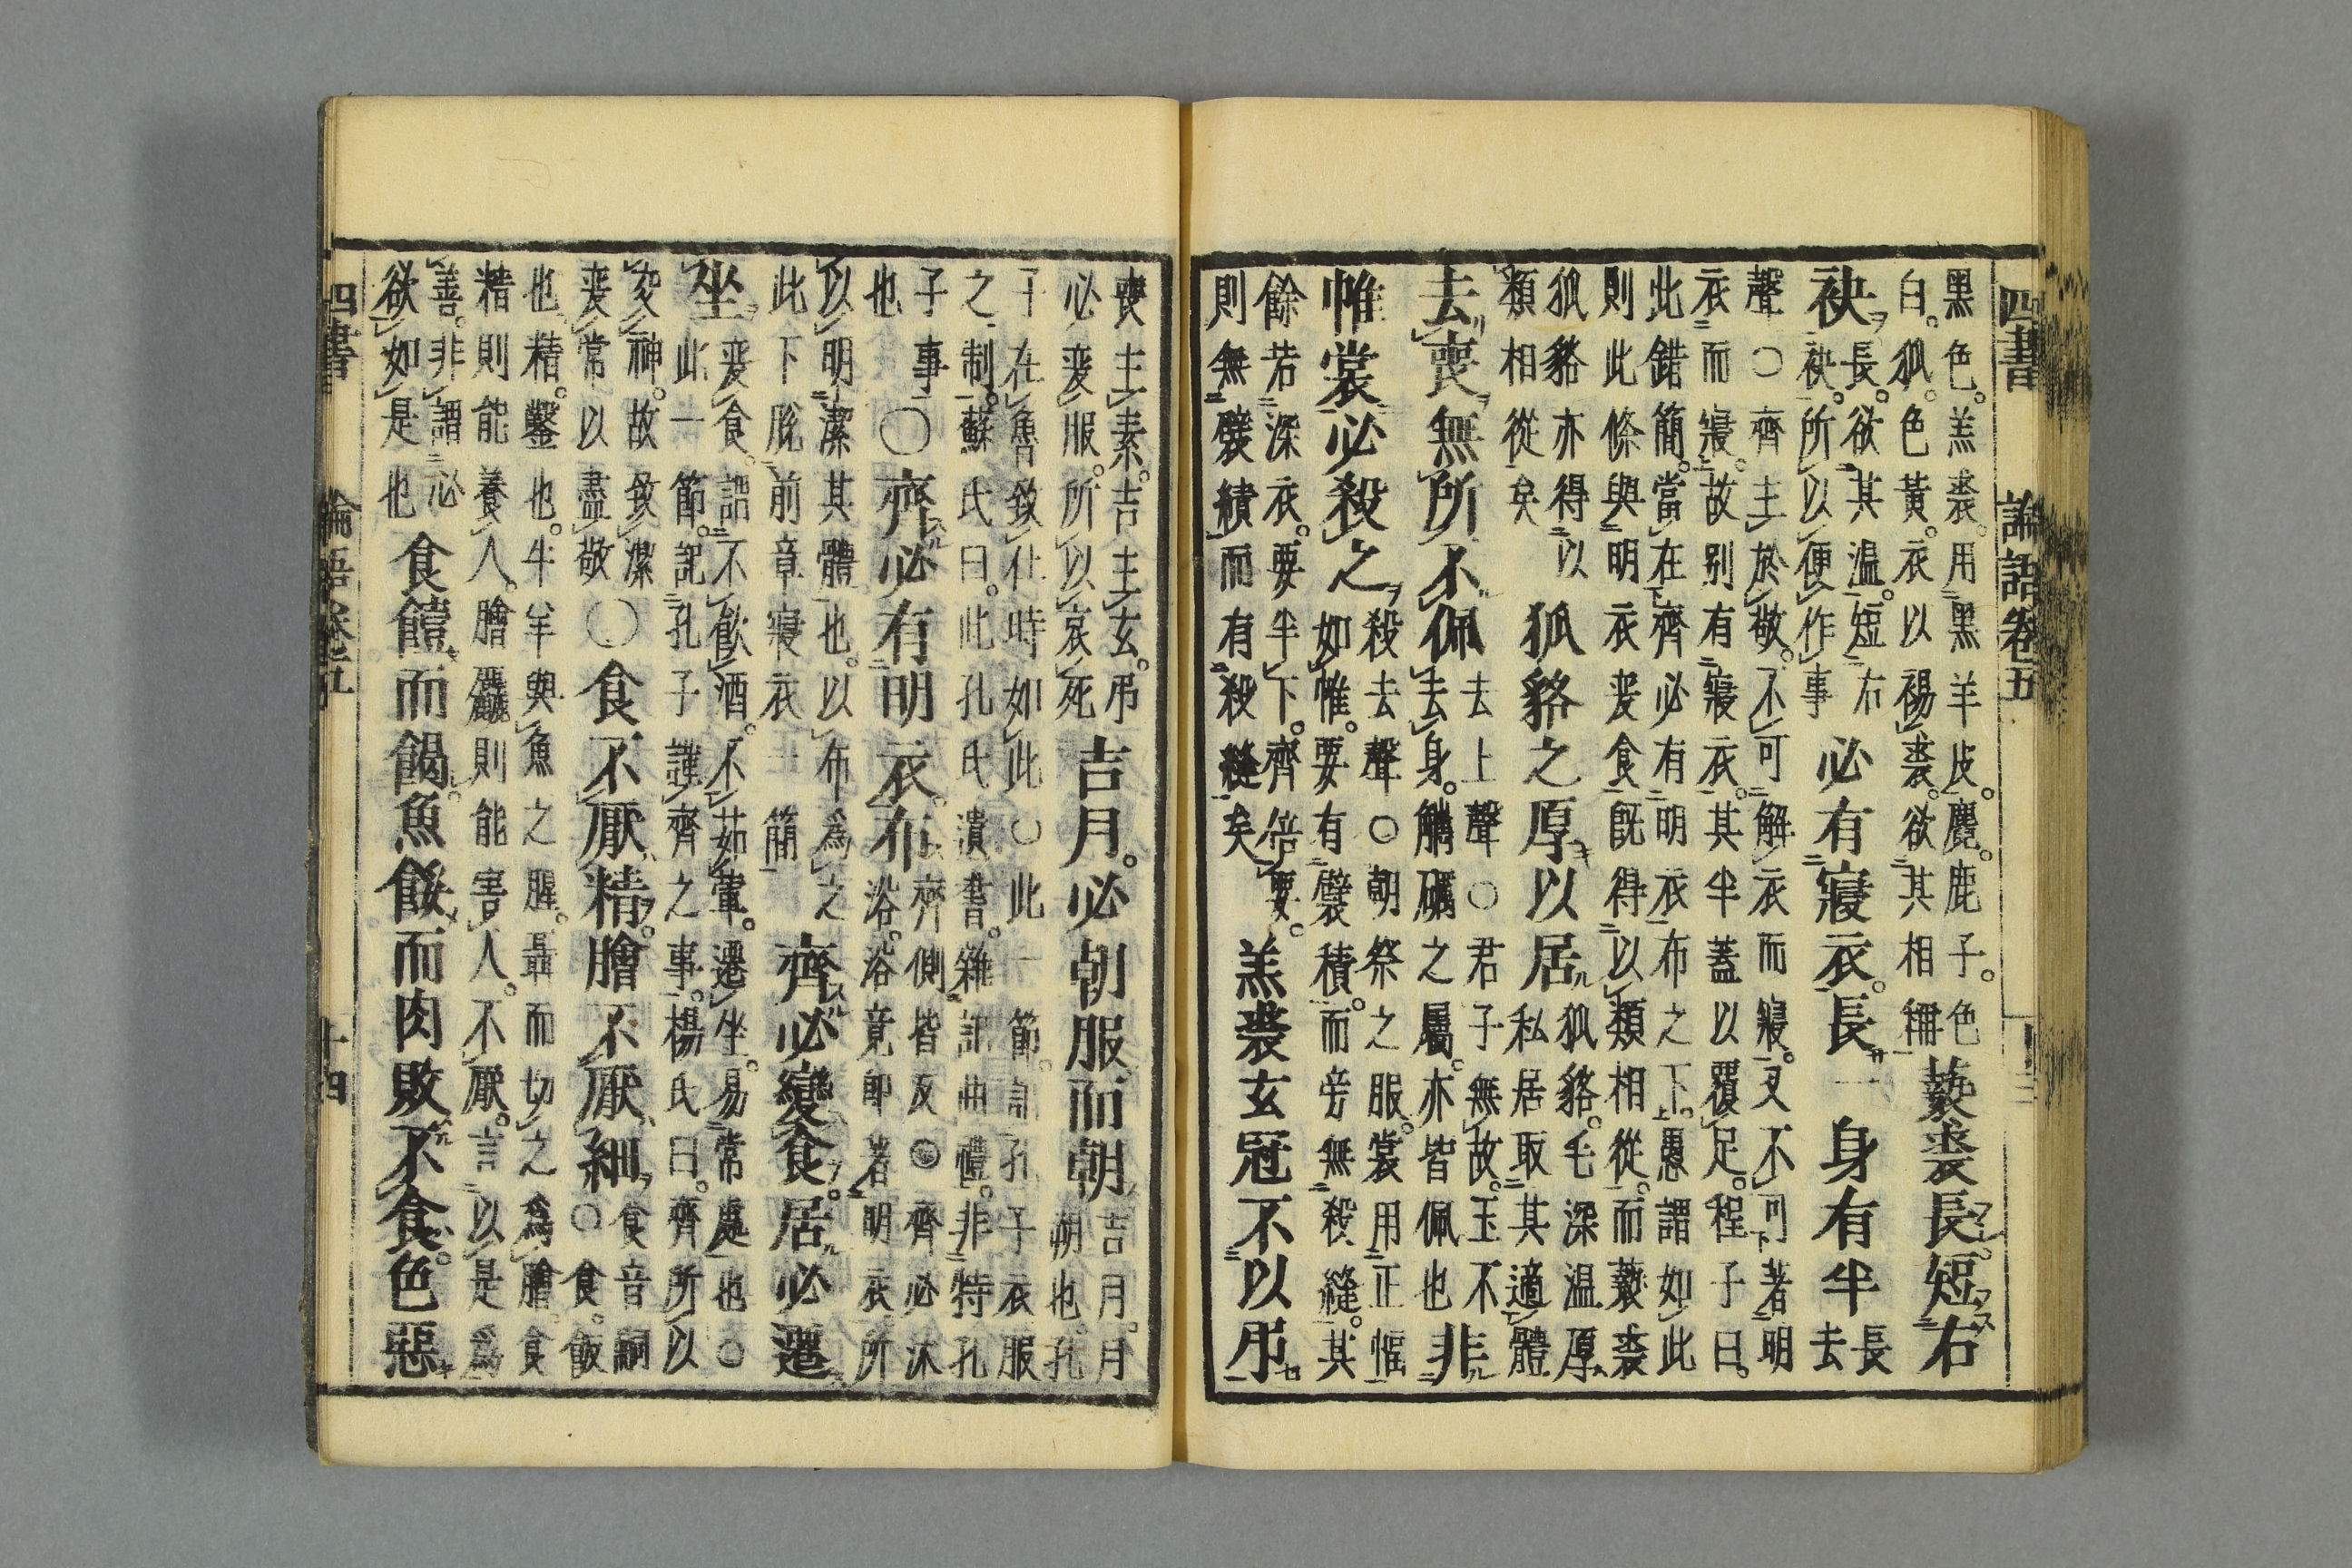 四書　論語卷五　十三
黑色。羔裘。用黑羊皮。麑。鹿子。色
白。狐。色黃。衣以裼裘。欲其相稱
褻裘長。短右
袂。
長。欲其温。短右
袂。所以便作事
必有寢衣。長一身有半
長
去
聲○齊主於敬。不可解衣而寢。又不可著明
衣而寢。故别有寢衣。其半蓋以覆足。程子曰。
此錯簡。當在齊必有明衣布之下。愚謂如此
則此條與明衣変食既得以類相從。而褻裘
狐貉亦得以
類相從矣
狐貉之厚以居
狐貉。毛深温厚
私居取其適體
去喪無所不佩
去上聲○君子無故。玉不
去身。觿礪之屬。亦皆佩也
非
帷裳必殺之
殺去聲○朝祭之服。裳用正幅
如帷。要有襞積。而旁無殺縫。其
餘若深衣。要半下。齊倍要。
則無襞績而有殺縫矣
羔裘玄冠不以弔
喪主素。吉主玄。弔
必変服。所以哀死
吉月。必朝服而朝
吉月。月
朔也。孔
子在魯致仕時如此○此一節。記孔子衣服
之制。蘇氏曰。此孔氏遺書。雜記曲禮。非特孔
子事
也
○齊必有明衣。布
齊側皆反○齊必沐
浴。浴竟即著明衣。所
以明潔其體也。以布為之
此下脫前章寢衣一簡
齊必變食。居必遷
坐
変食。謂不飲酒。不茹葷。遷坐。易常處也○
此一節。記孔子謹齊之事。楊氏曰。齊所以
交神。故致潔
変常以盡敬
○食不厭精。膾不厭細
食音嗣
○食。飯
也。精。鑿也。牛羊與魚之腥。聶而切之為膾。食
精則能養人。膾麤則能害人。不厭。言以是為
善。非謂必
欲如是也
食饐而餲。魚餒而肉敗不食。色惡
四書　論語卷五　十四